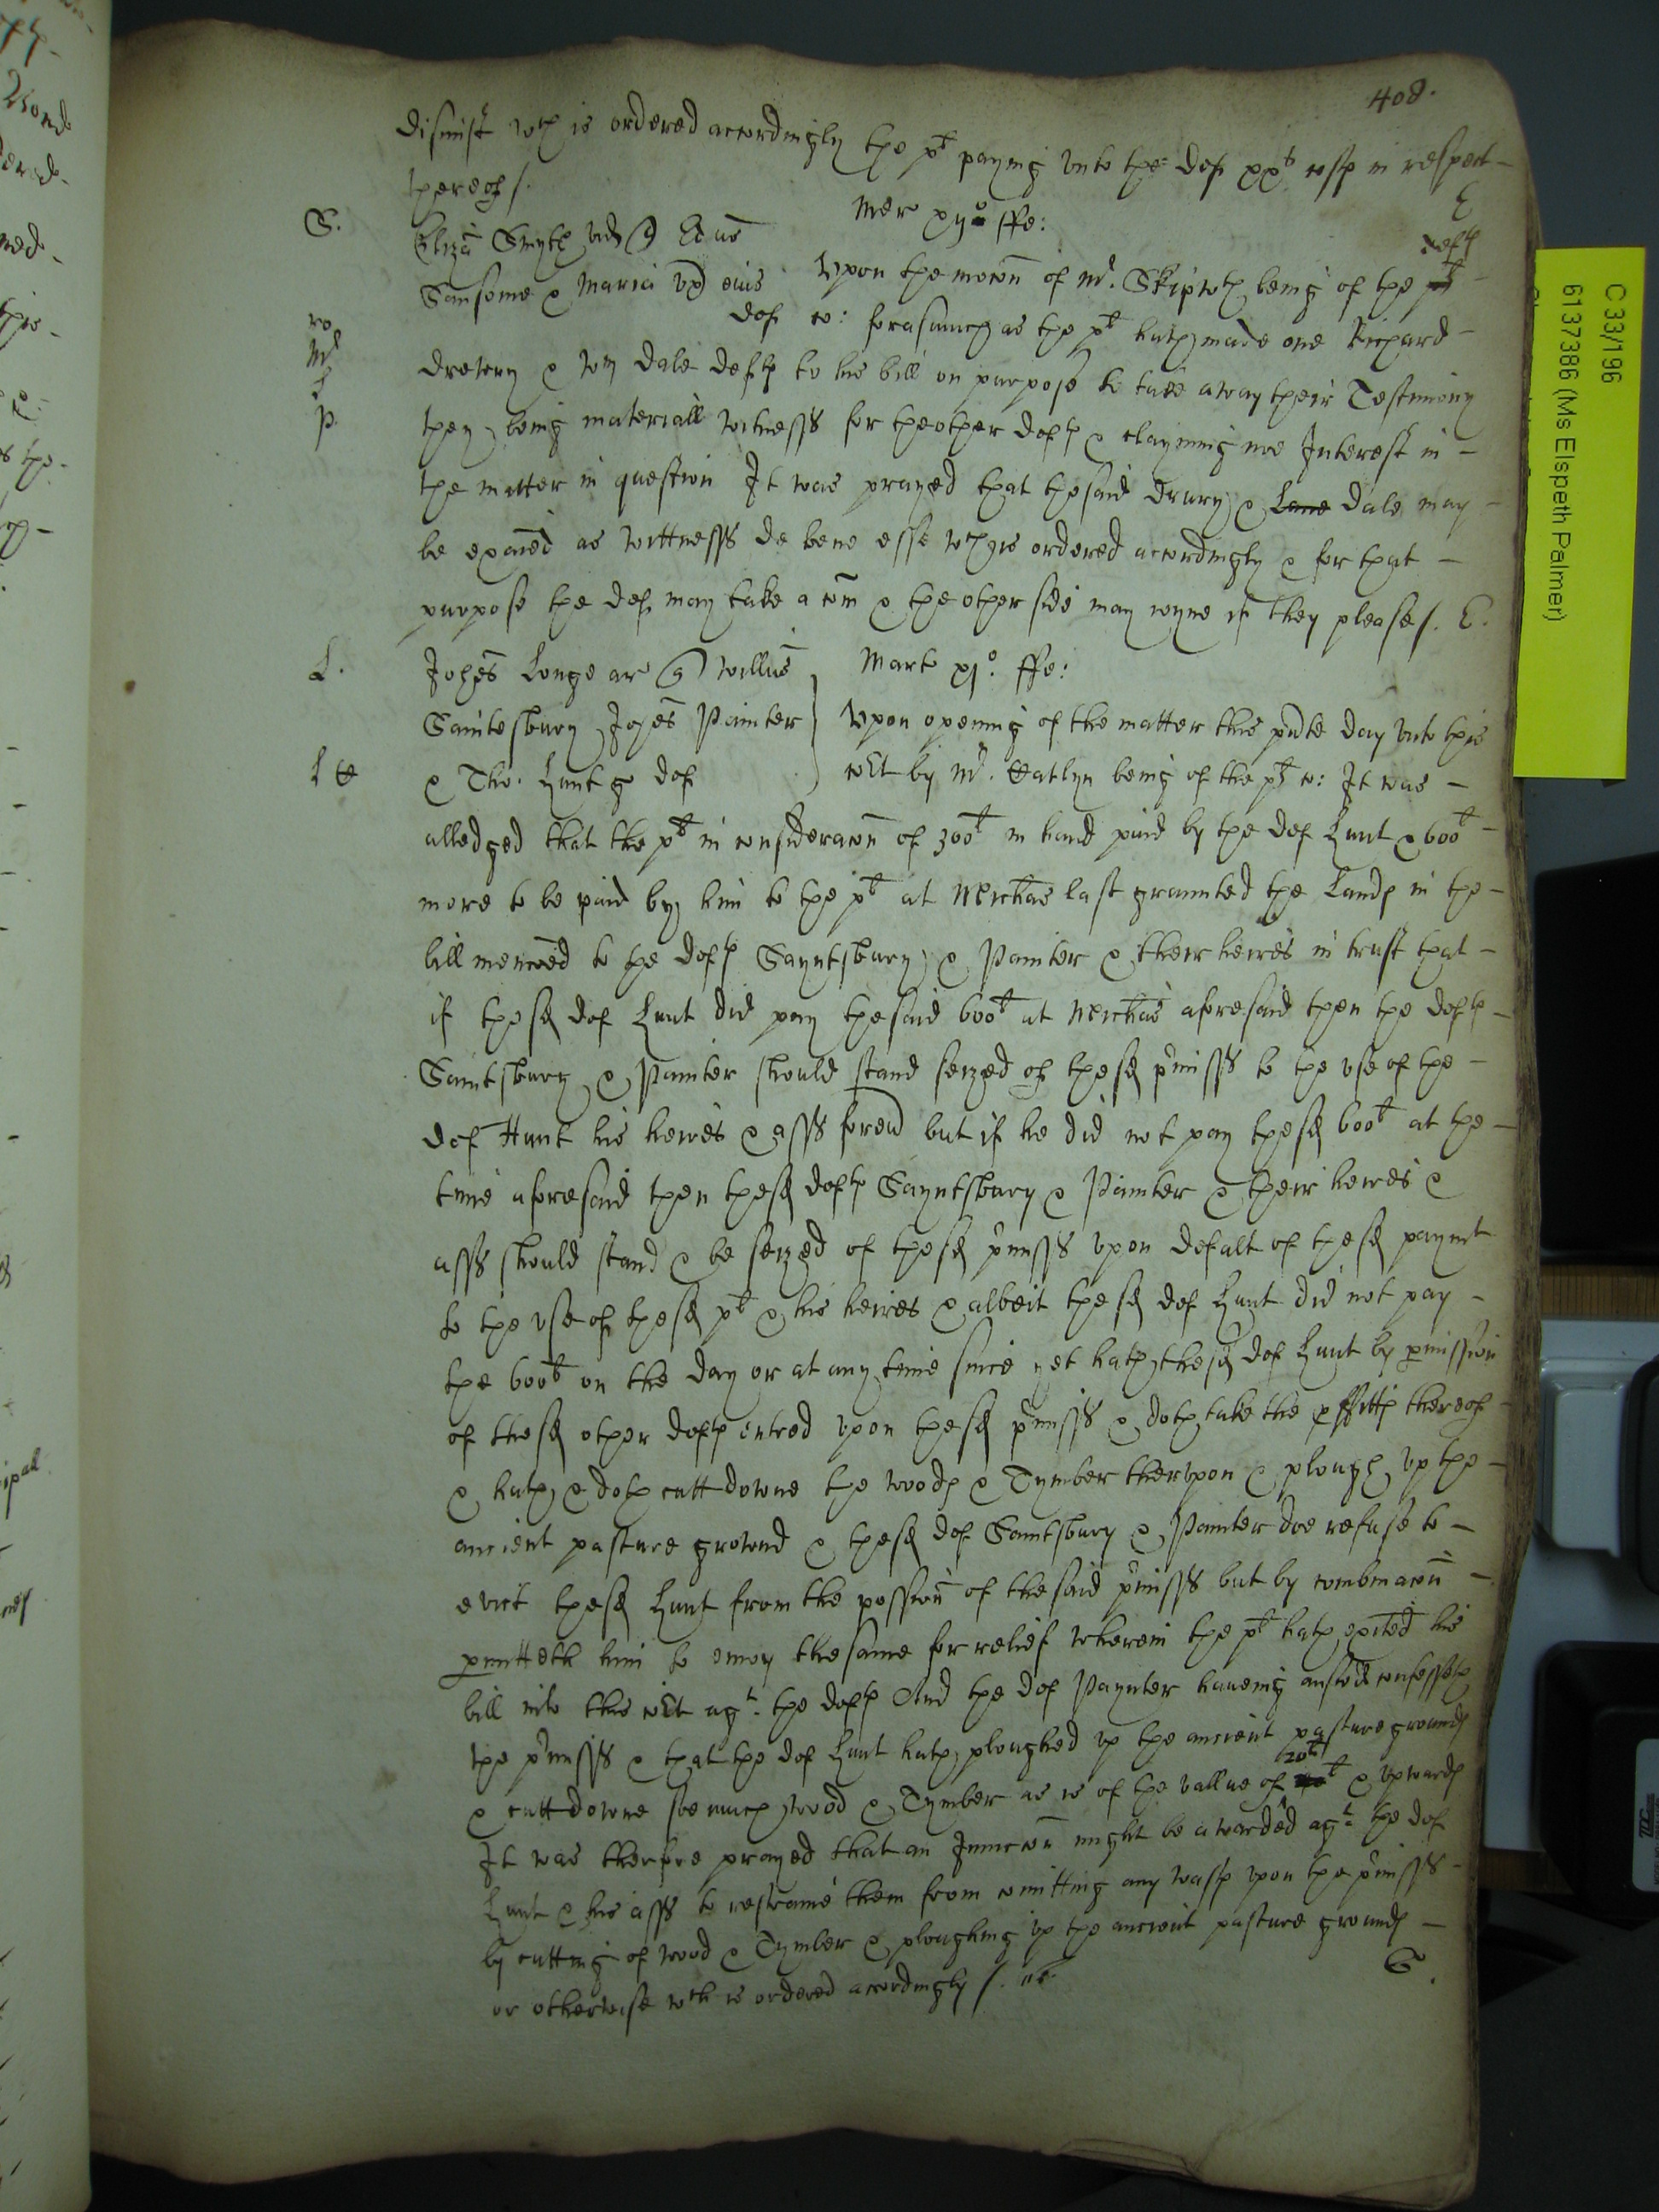 408.
dismist wch is ordered accordingly the plt paying unto the def xxs costs in respect
thereof /.
E
S.
Eliza Smyth vid Q Edus
Mer xijo ffe:
Sansome & Maria ux eius
def
Upon the mocon of Mr. Skipwth being of the plt
defts
co: forasmuch as the plt hath made one Richard
Drewry & Wm Dale defts to his bill on purpose to take away their Testimony
they being materiall witnesses for theother defts & clayming noe Interest in
the matter in question It was prayed that the said Drury & Lane Dale may
be exaied as wittnesses de bene esse wch is ordered accordingly & for that
purpose the def may take a com & the other side may ioyne if they please /. E.
L.
Johes Longe ar Q Willus
Marte xjo. ffe:
Saintesbury Johes Painter
Upon opening of the matter this pnte day unto this
& Tho: Hunt g def
Cort by Mr. Hatlyn being of the plts co: It was
alledged that the plt in consideracon of 300l in hand paid by the def Hunt & 600l
more to be paid by him to the plt at Michas last graunted the Lands in the
bill mencoed to the defts Sayntsbury & Painter & their heires in trust that
if the sd def Hunt did pay the said 600l at Michas aforesaid then the defts
Saintsbury & Painter should stand seized of the sd pmisses to the use of the
def Hunt his heires & asss forevr but if he did not pay the sd 600l at the
time aforesaid then the sd defts Sayntsbury & Painter & their heires &
asss should stand & be seized of the sd pmisses upon defalt of the sd paymt
to the use of the sd plt & his heires & albeit the sd def Hunt did not pay
the 600l on the day or at any time since yet hath the sd def Hunt by pmission
of the sd other defts entred upon the sd pmisses & doth take the pffitts thereof
& hath & doth cutt downe the woods & Tymber therupon & plough up the
ancient pasture ground & the sd def Saintsbury & Painter doe refuse to
evict the sd Hunt from the possion of the said pmisses but by combinacon
pmitteth him to enioy the same for relief wherein the plt hath exited his
bill into this Cort agt. the defts And the def Paynter haueing answd confesseth
the pmisses & that the def Hunt hath ploughed up the ancient pasture grounds
20l
& cutt downe soe much wood & Tymber as is of the vallue of & upwards
It was therfore prayed that an Iniuccon might be awarded agt the def
Hunt & his asss to restraine them from comitting any wast upon the pmisses
by cutting of wood & Tymber & ploughing up the ancient pasture grounds
or otherwise wch is ordered accordingly /.
C 33/196
6137386 (Ms Elspeth Palmer)